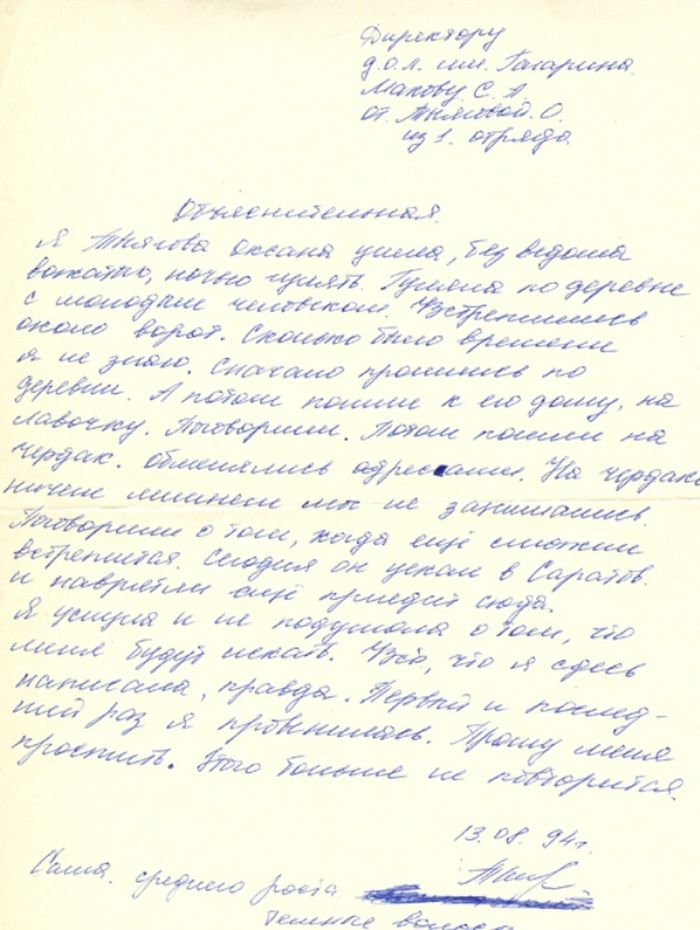 Директору
д.о.л. им. Гагарина
Макову С. А.
от О.
из 1. отряда
Объяснительная.
Я Оксана ушла, без ведома
вожатых, ночью гулять. Гуляла по деревне
с молодым человеком. Встретились
около ворот. Сколько было времени
я не знаю. Сначало прошлись по
деревни. А потом пошли к его дому, на
лавочку. Поговорили. Потом пошли на
чердак. Обменялись адресами. На чердаке
ничем лишнем мы не занимались.
Поговорили о том, когда ещё сможем
встретится. Сегодня он уехал в Саратов.
и наврятли ещё приедит сюда.
Я ушла и не подумала о том, что
меня будут искать. Всё, что я сдесь
написала, правда. Первый и послед-
ний раз я провинилась. Прошу меня
простить. Этого больше не повторится.
13.08.94г.
Саша. среднего роста
темные волосы